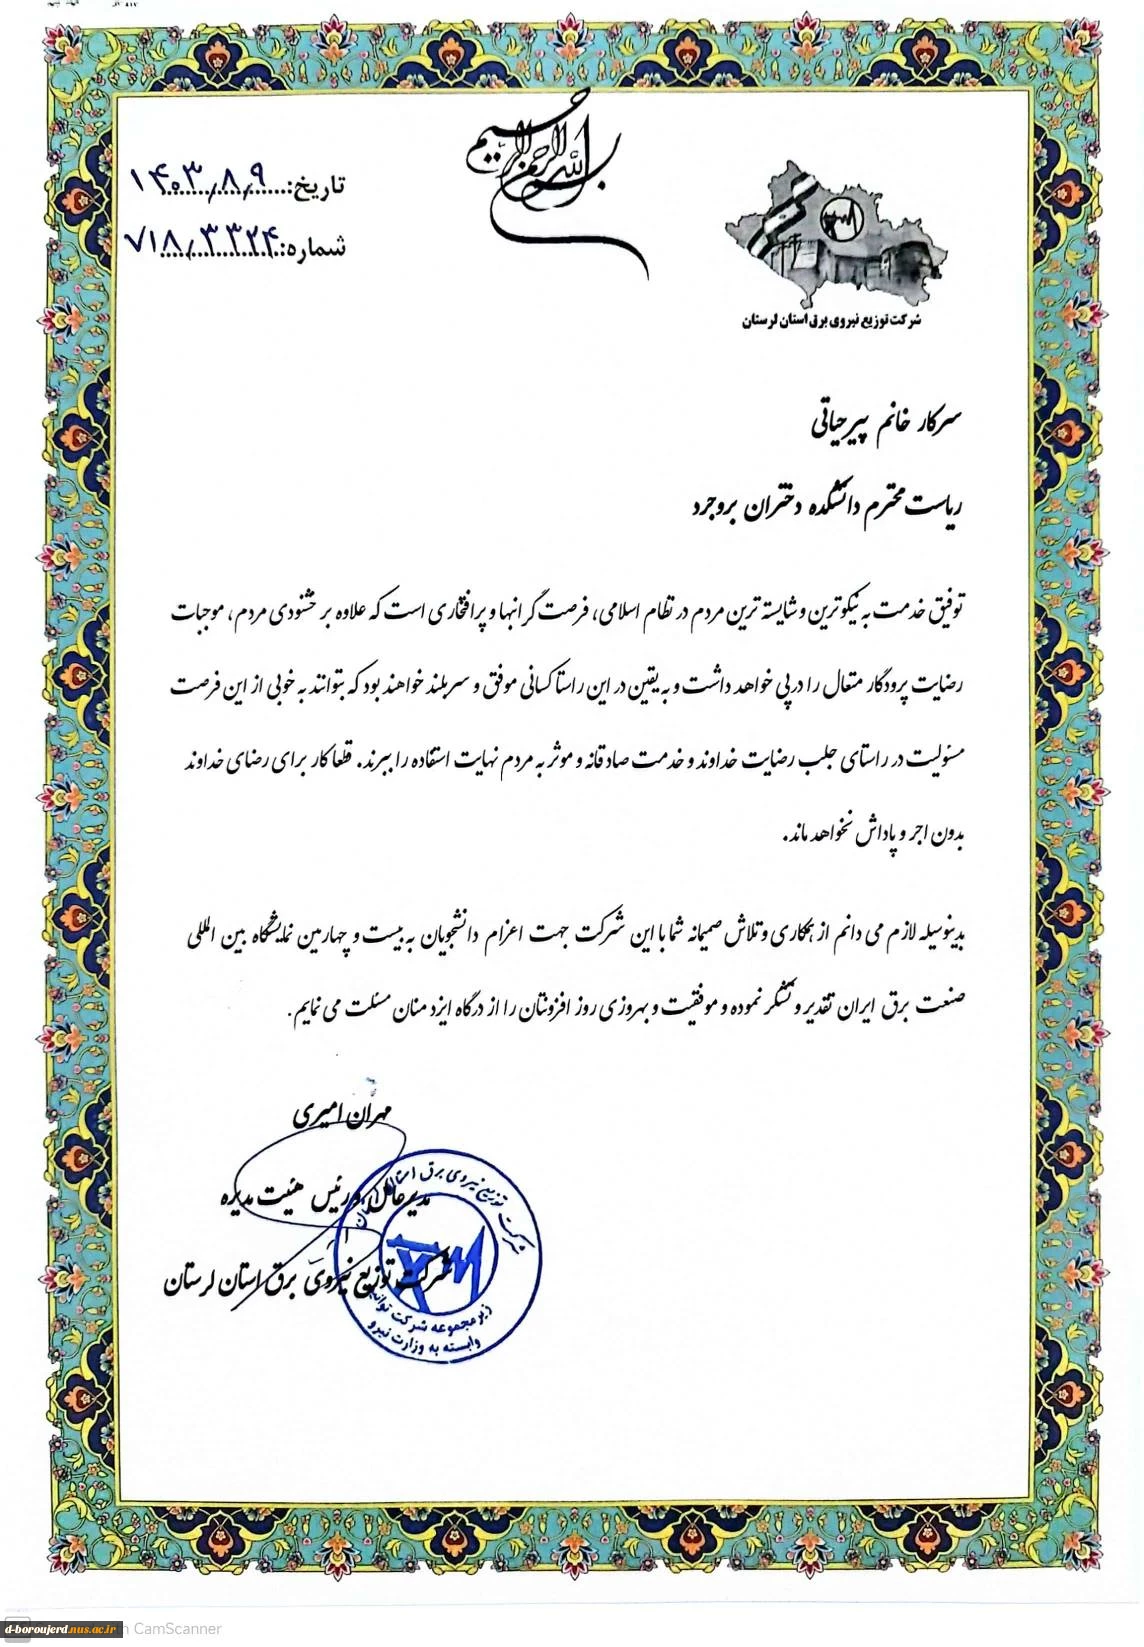 بسم الله الرحمن الرحیم
تاریخ: ۱۴۰۳/۸/۹
شماره: ۷۱۸/۳۳۲۴
شرکت توزیع نیروی برق استان لرستان
سرکار خانم پیرحیاتی
ریاست محترم دانشکده دختران بروجرد
توفیق خدمت به نیکوترین و شایسته ترین مردم در نظام اسلامی، فرصت گرانبها و پرافتخاری است که علاوه بر خشنودی مردم، موجبات
رضایت پرودگار متعال را در پی خواهد داشت و به یقین در این راستا کسانی موفق و سربلند خواهند بود که بتوانند به خوبی از این فرصت
مسئولیت در راستای جلب رضایت خداوند و خدمت صادقانه و موثر به مردم نهایت استفاده را ببرند. قطعا کار برای رضای خداوند
بدون اجر و پاداش نخواهد ماند.
بدینوسیله لازم می دانم از همکاری و تلاش صمیمانه شما با این شرکت جهت اعزام دانشجویان به بیست و چهارمین نمایشگاه بین المللی
صنعت برق ایران تقدیر و تشکر نموده و موفقیت و بهروزی روز افزونتان را از درگاه ایزد منان مسئلت می نمایم.
مهران امیری
مدیرعامل و رئیس هیئت مدیره
شرکت توزیع نیروی برق استان لرستان
شرکت توزیع نیروی برق استان
زیر مجموعه شرکت توانیر
وابسته به وزارت نیرو
d-boroujerd.nus.ac.ir
CamScanner